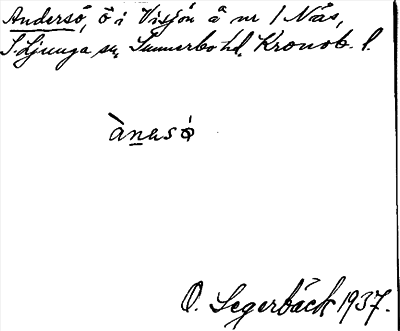 Andersö, ö i Visjön å nr 1 Nås,
S. Ljunga sn, Sunnerbo hd, Kronob. l.
ànɐsö
O. Segerbäck 1937.